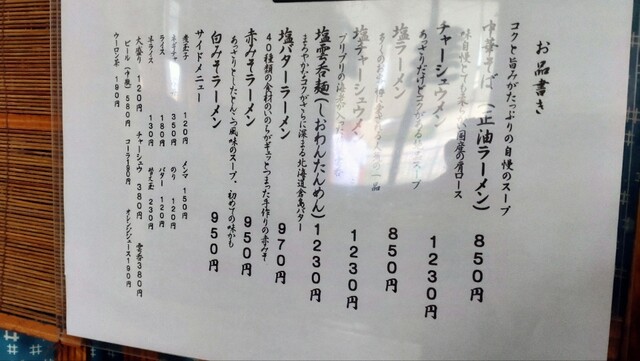 お品書き
コクと旨みがたっぷりの自慢のスープ
中華そば（正油ラーメン）850円
味自慢 国産の肩ロース
チャーシュウメン 1230円
あっさりだけどコクがある スープ
塩ラーメン 850円
一品
塩チャーシュウメン 1230円
プリプリの海老が入った
塩雲呑麺（しおわんたんめん）1230円
まろやかなコクがさらに深まる北海道倉島バター
塩バターラーメン 970円
40種類の食材のいのちがギュッとつまった手作りの赤みそ
赤みそラーメン 950円
あっさりとしたとんこつ風味のスープ、初めての味かも
白みそラーメン 950円
サイドメニュー
煮玉子 120円 メンマ 150円
ネギチャ 350円 のり 120円
ライス 180円 バター 120円
半ライス 130円 替え玉 230円
大盛り 120円 チャーシュウ 380円 雲呑 380円
ビール（中瓶）580円 コーラ 190円 オレンジジュース 190円
ウーロン茶 190円